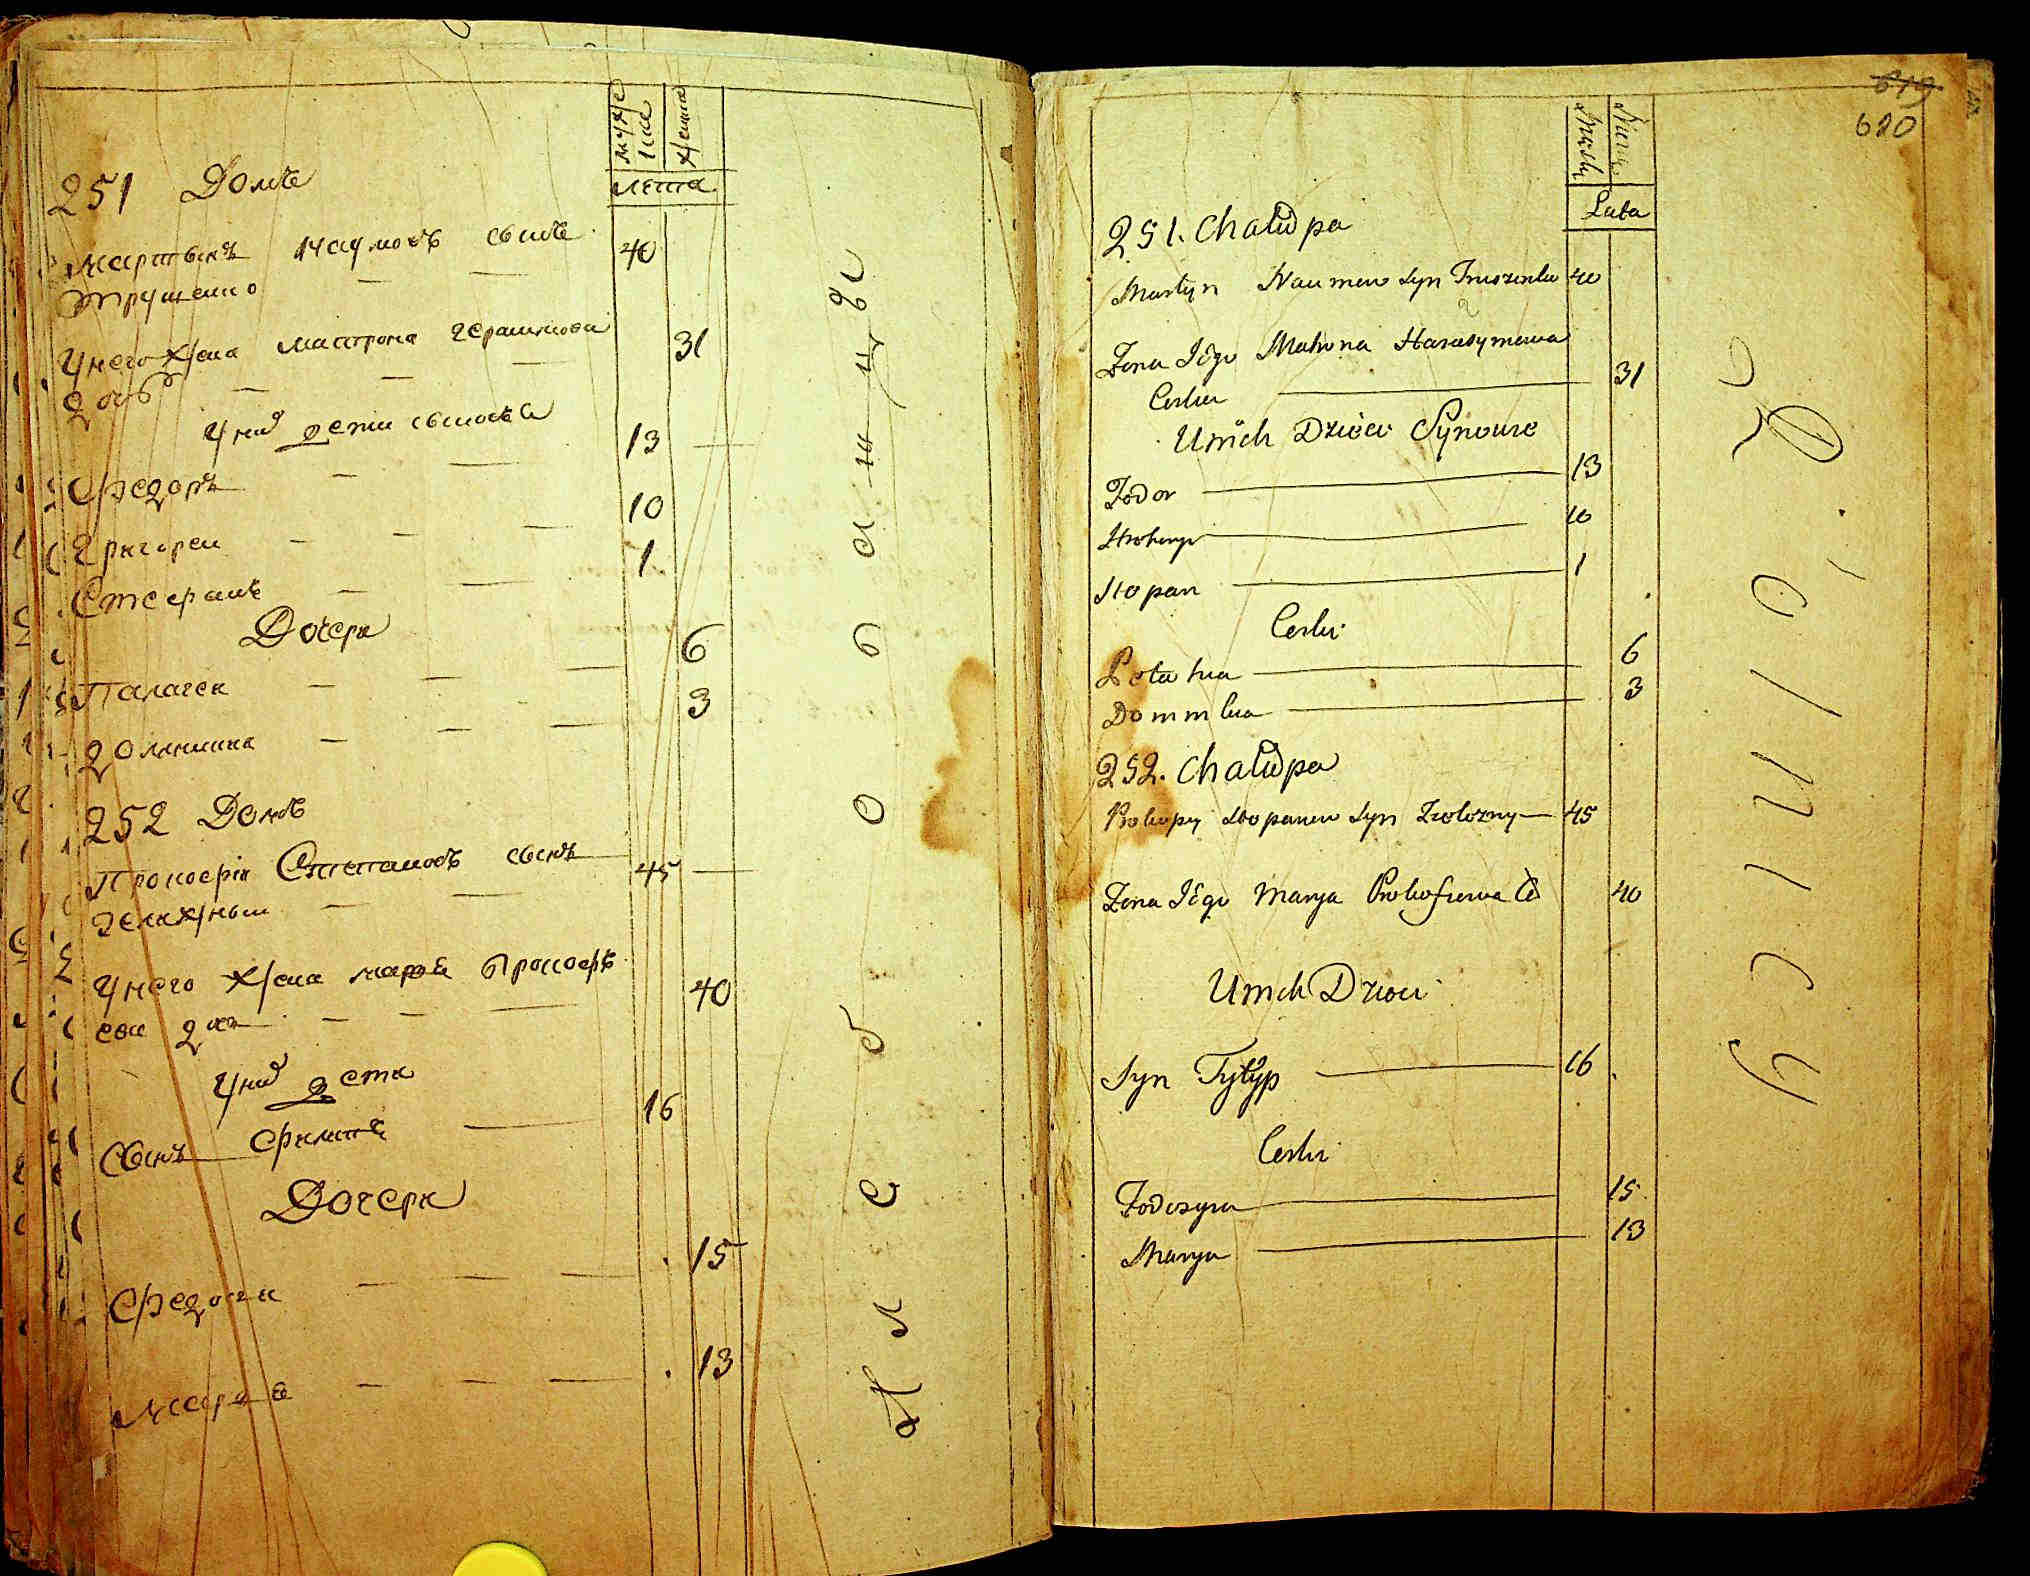 муже
ские
женска
лѣта
251 Домъ
Мартынъ Наумовъ сынъ 40
Трушенко
У него жена Матрона Герасимова 31
доч
У них дети сыновья
Федоръ 13
Григореи 10
Стефанъ 1
Дочери
Палагея 6
Домникия 3
252 Домъ
Прокофiи Степановъ сынъ 45
Железныи
У него жена Маря Прокофь
ева доч 40
У них дети
Сынъ Филипъ 16
Дочери
Федосия 15
Маря 13
619
620
Lata
251. Chałupa
Martyn Naumow Syn Truszenko 40
Żona Iego Matrona Harasymowa
Corka 31
U nich Dzieci Synowie
Fodor 13
Hrehory 10
Stepan 1
Corki
Pelahia 6
Domnikia 3
252. Chałupa
Prokopy Stopanow Syn Zelozny 45
Żona Iego Marya Prokofiewa C 40
U nich Dzieci
Syn Fylyp 16
Corki
Fodosyia 15
Marya 13
Rolnicy